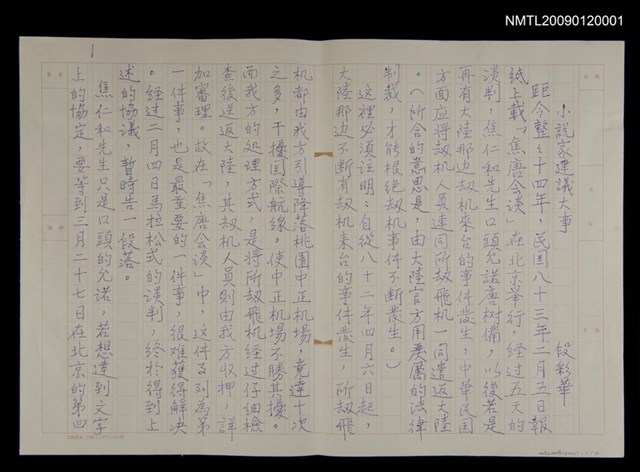 NMTL20090120001
1
小說家建議大事
段彩華
距今整整十四年，民國八十三年二月五日報
紙上載「焦唐会談」在北京舉行。経过五天的
淡判，焦仁和先生口頭允諾唐树備，以後若是
再有大陸那边刼机來台的事件發生，中華民国
方面应将刼机人員連同所刼飛机一同遣返大陸
。（所含的意思是，由大陸官方用嚴厲的法律
制裁，才能根絕刼机事件不断發生。）
這裡必須注明：自從八十二年四月六日起，
大陸那边不断有刼机来台的事件發生，所刼飛
机都由我方引導降落桃園中正机場，竟達十次
之多，干擾囯際航線，使中正机場不勝其擾。
而我方的処理方式，是将所刼飛机経过仔細檢
查後送返大陸，其刼机人員則由我方収押，詳
加審理。故在「焦唐会談」中，这件事列為第
一件事，也是最重要的一件事，很难獲得解決
。経过二月四日馬拉松式的淡判，終於得到上
述的協議，暫時告一段落。
焦仁和先生只是口頭的允诺，若想達到文字
上的協定，要等到三月二十七日在北京的第四